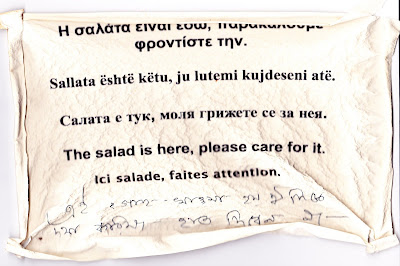 Η σαλάτα είναι εδώ, παρακαλούμε
φροντίστε την.
Sallata është këtu, ju lutemi kujdeseni atë.
Салата е тук, моля грижете се за нея.
The salad is here, please care for it.
Ici salade, faites attention.